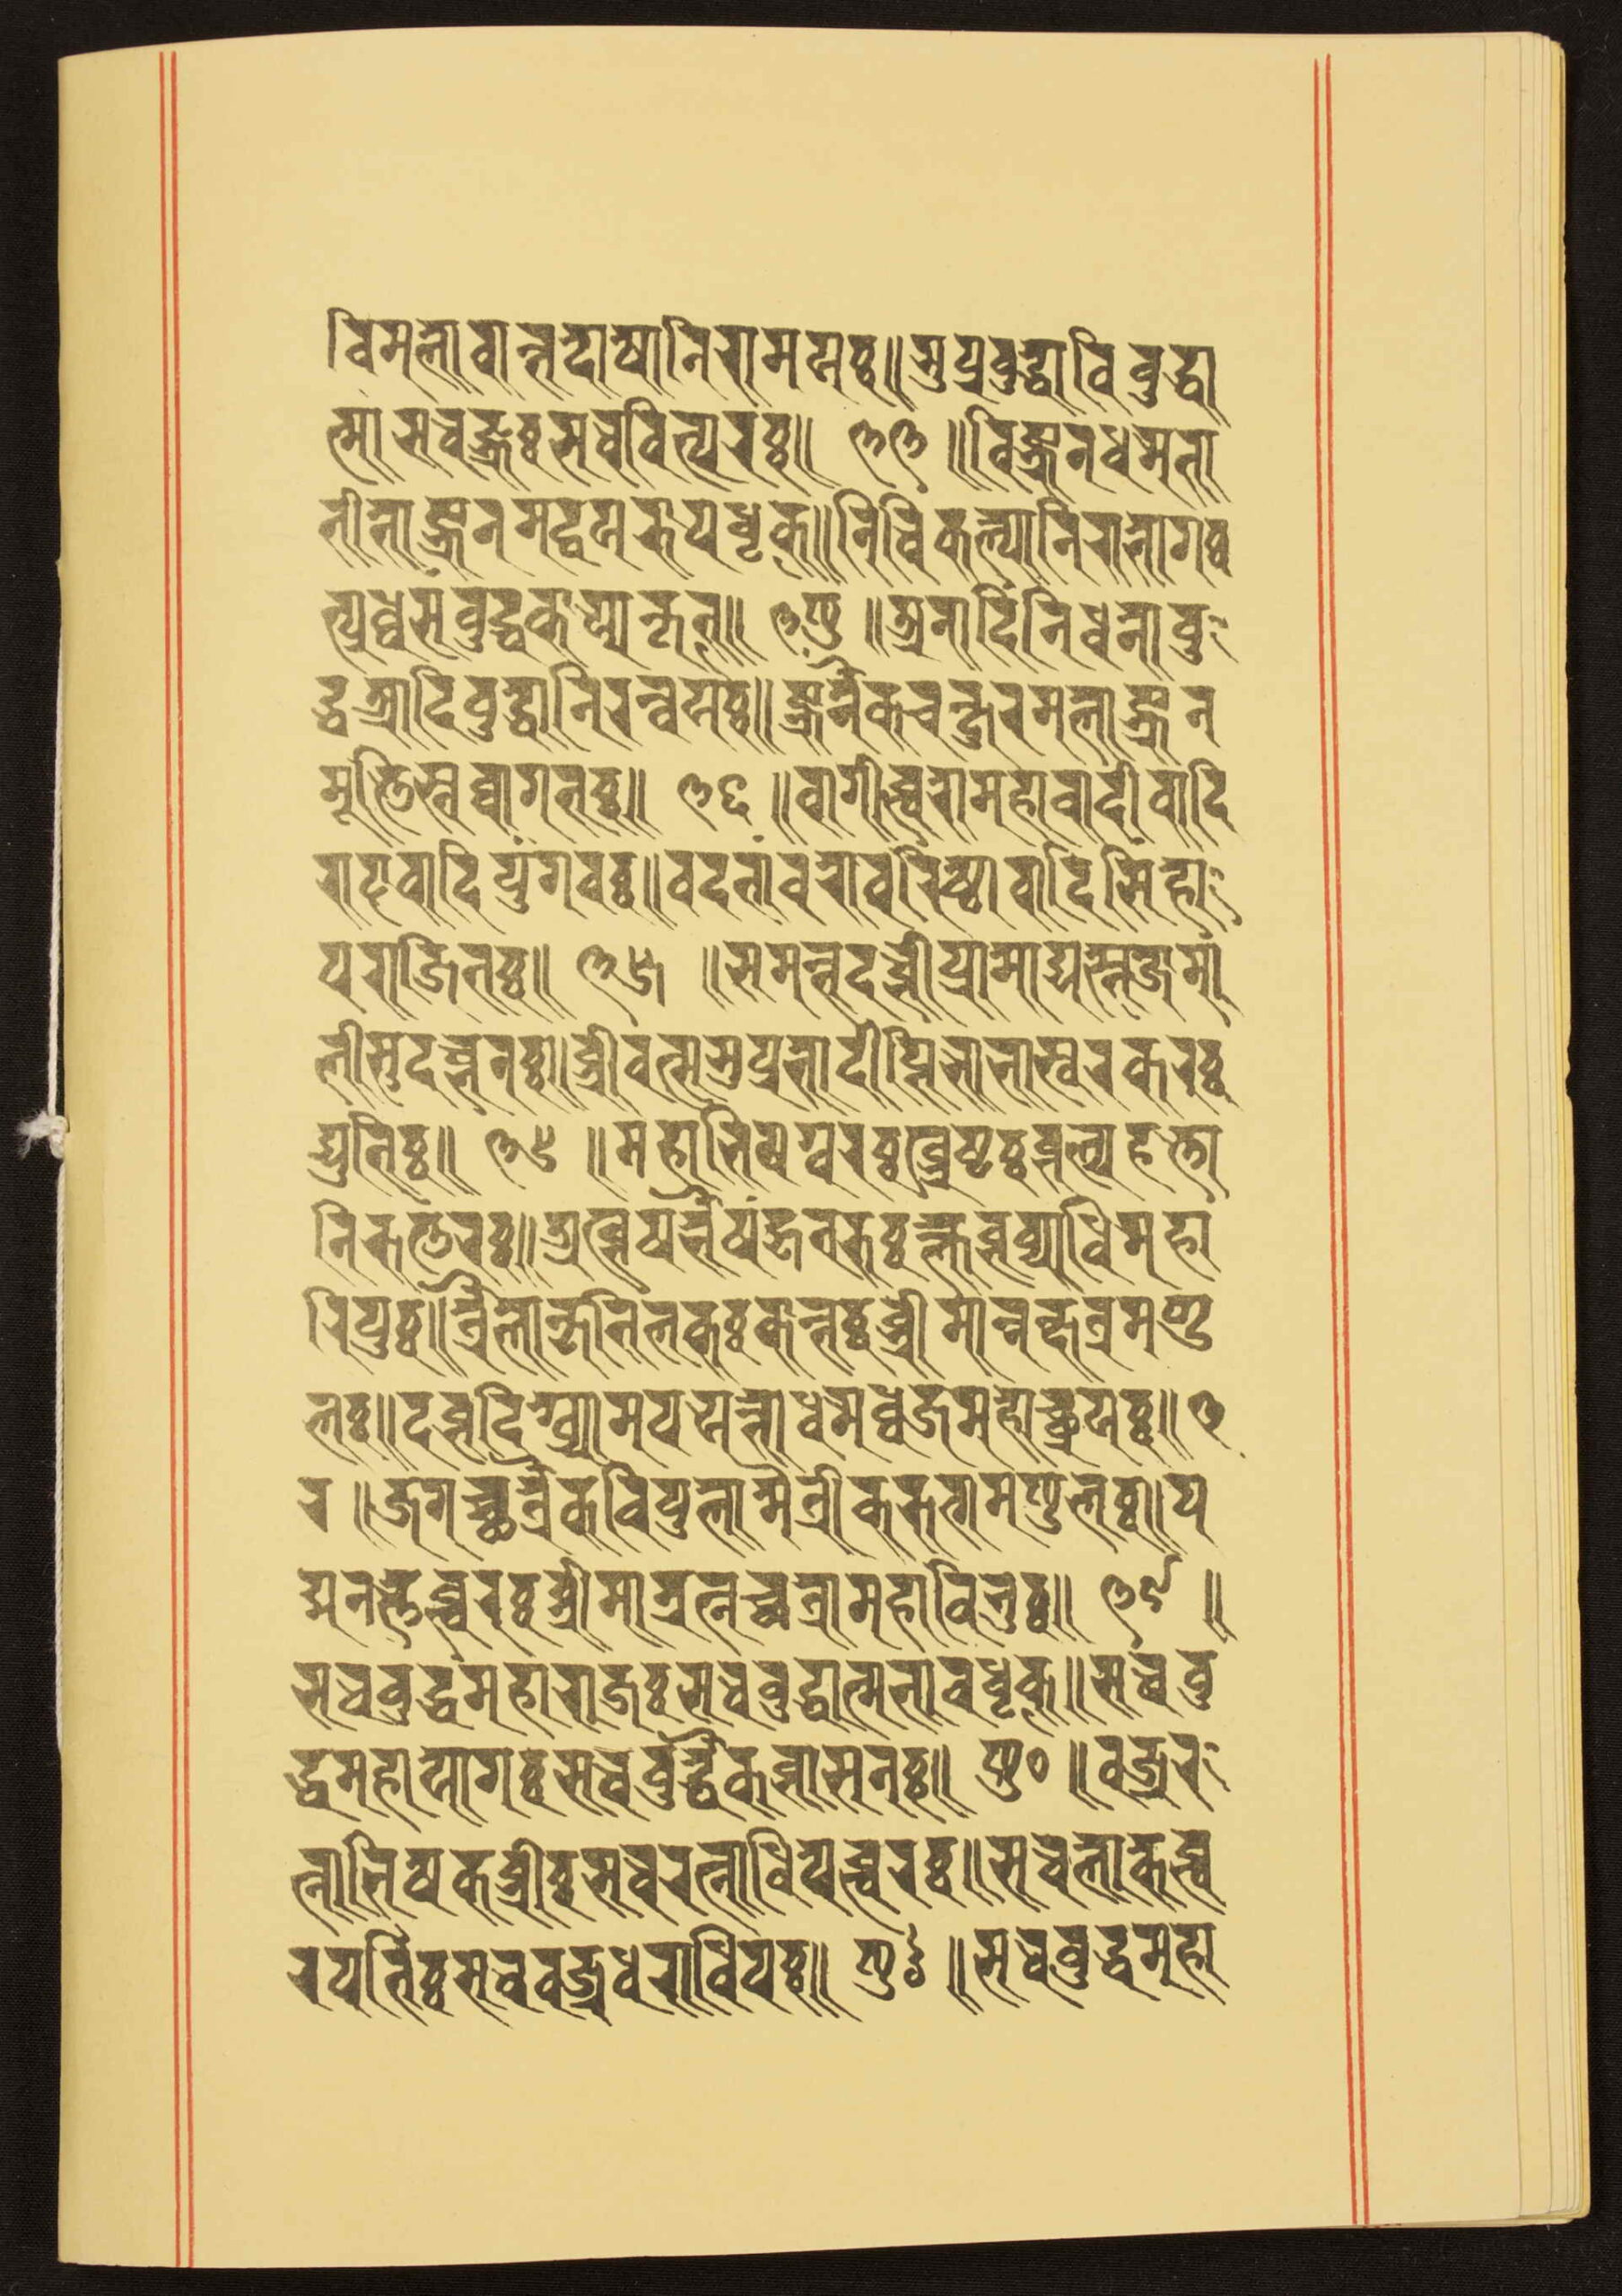 विमलोवान्तदोषोनिरामयः॥सुप्रबुद्धोविबुद्धा
त्मासर्वज्ञःसर्ववित्परः॥ ४४ ॥विज्ञानधर्मता
तीतोज्ञानमद्वयरूपधृक्॥निर्विकल्पोनिराभोगः
त्र्यध्वसंबुद्धकार्यकृत्॥ ४५ ॥अनादिनिधनोबु
द्धआदिबुद्धोनिरन्वयः॥ज्ञानैकचक्षुरमलोज्ञान
मूर्त्तिस्तथागतः॥ ४६ ॥वागीश्वरोमहावादीवादि
राट्वादिपुंगवः॥वदतांवरोवरिष्ठोवादिसिंहो
पराजितः॥ ४७ ॥समन्तदर्शीप्रामोद्यस्तेजोमा
लीसुदर्शनः॥श्रीवत्ससुप्रभोदीप्तिर्भाभासुरकरः
द्युतिः॥ ४८ ॥महाभिषग्वरःश्रेष्ठःशल्यहर्त्ता
निरुत्तरः॥अशेषभैषज्यतरुःक्लेशव्याधिमहा
रिपुः॥त्रैलोक्यतिलकःकान्तःश्रीमान्नक्षत्रमण्ड
लः॥दशदिग्व्योमपर्यन्तोधर्मध्वजमहोच्छ्रयः॥ ४
८ ॥जगच्छत्रैकविपुलोमैत्रीकरुणामण्डलः॥प
द्मनर्त्तेश्वरःश्रीमान्रत्नच्छत्रोमहाविभुः॥ ४९ ॥
सर्वबुद्धमहाराजःसर्वबुद्धात्मभावधृक्॥सर्वबु
द्धमहायोगःसर्वबुद्धैकशासनः॥ ५० ॥वज्रर
त्नाभिषेकश्रीःसर्वरत्नाधिपेश्वरः॥सर्वलोकेश्व
रपतिःसर्ववज्रधराधिपः॥ ५१ ॥सर्वबुद्धमहा